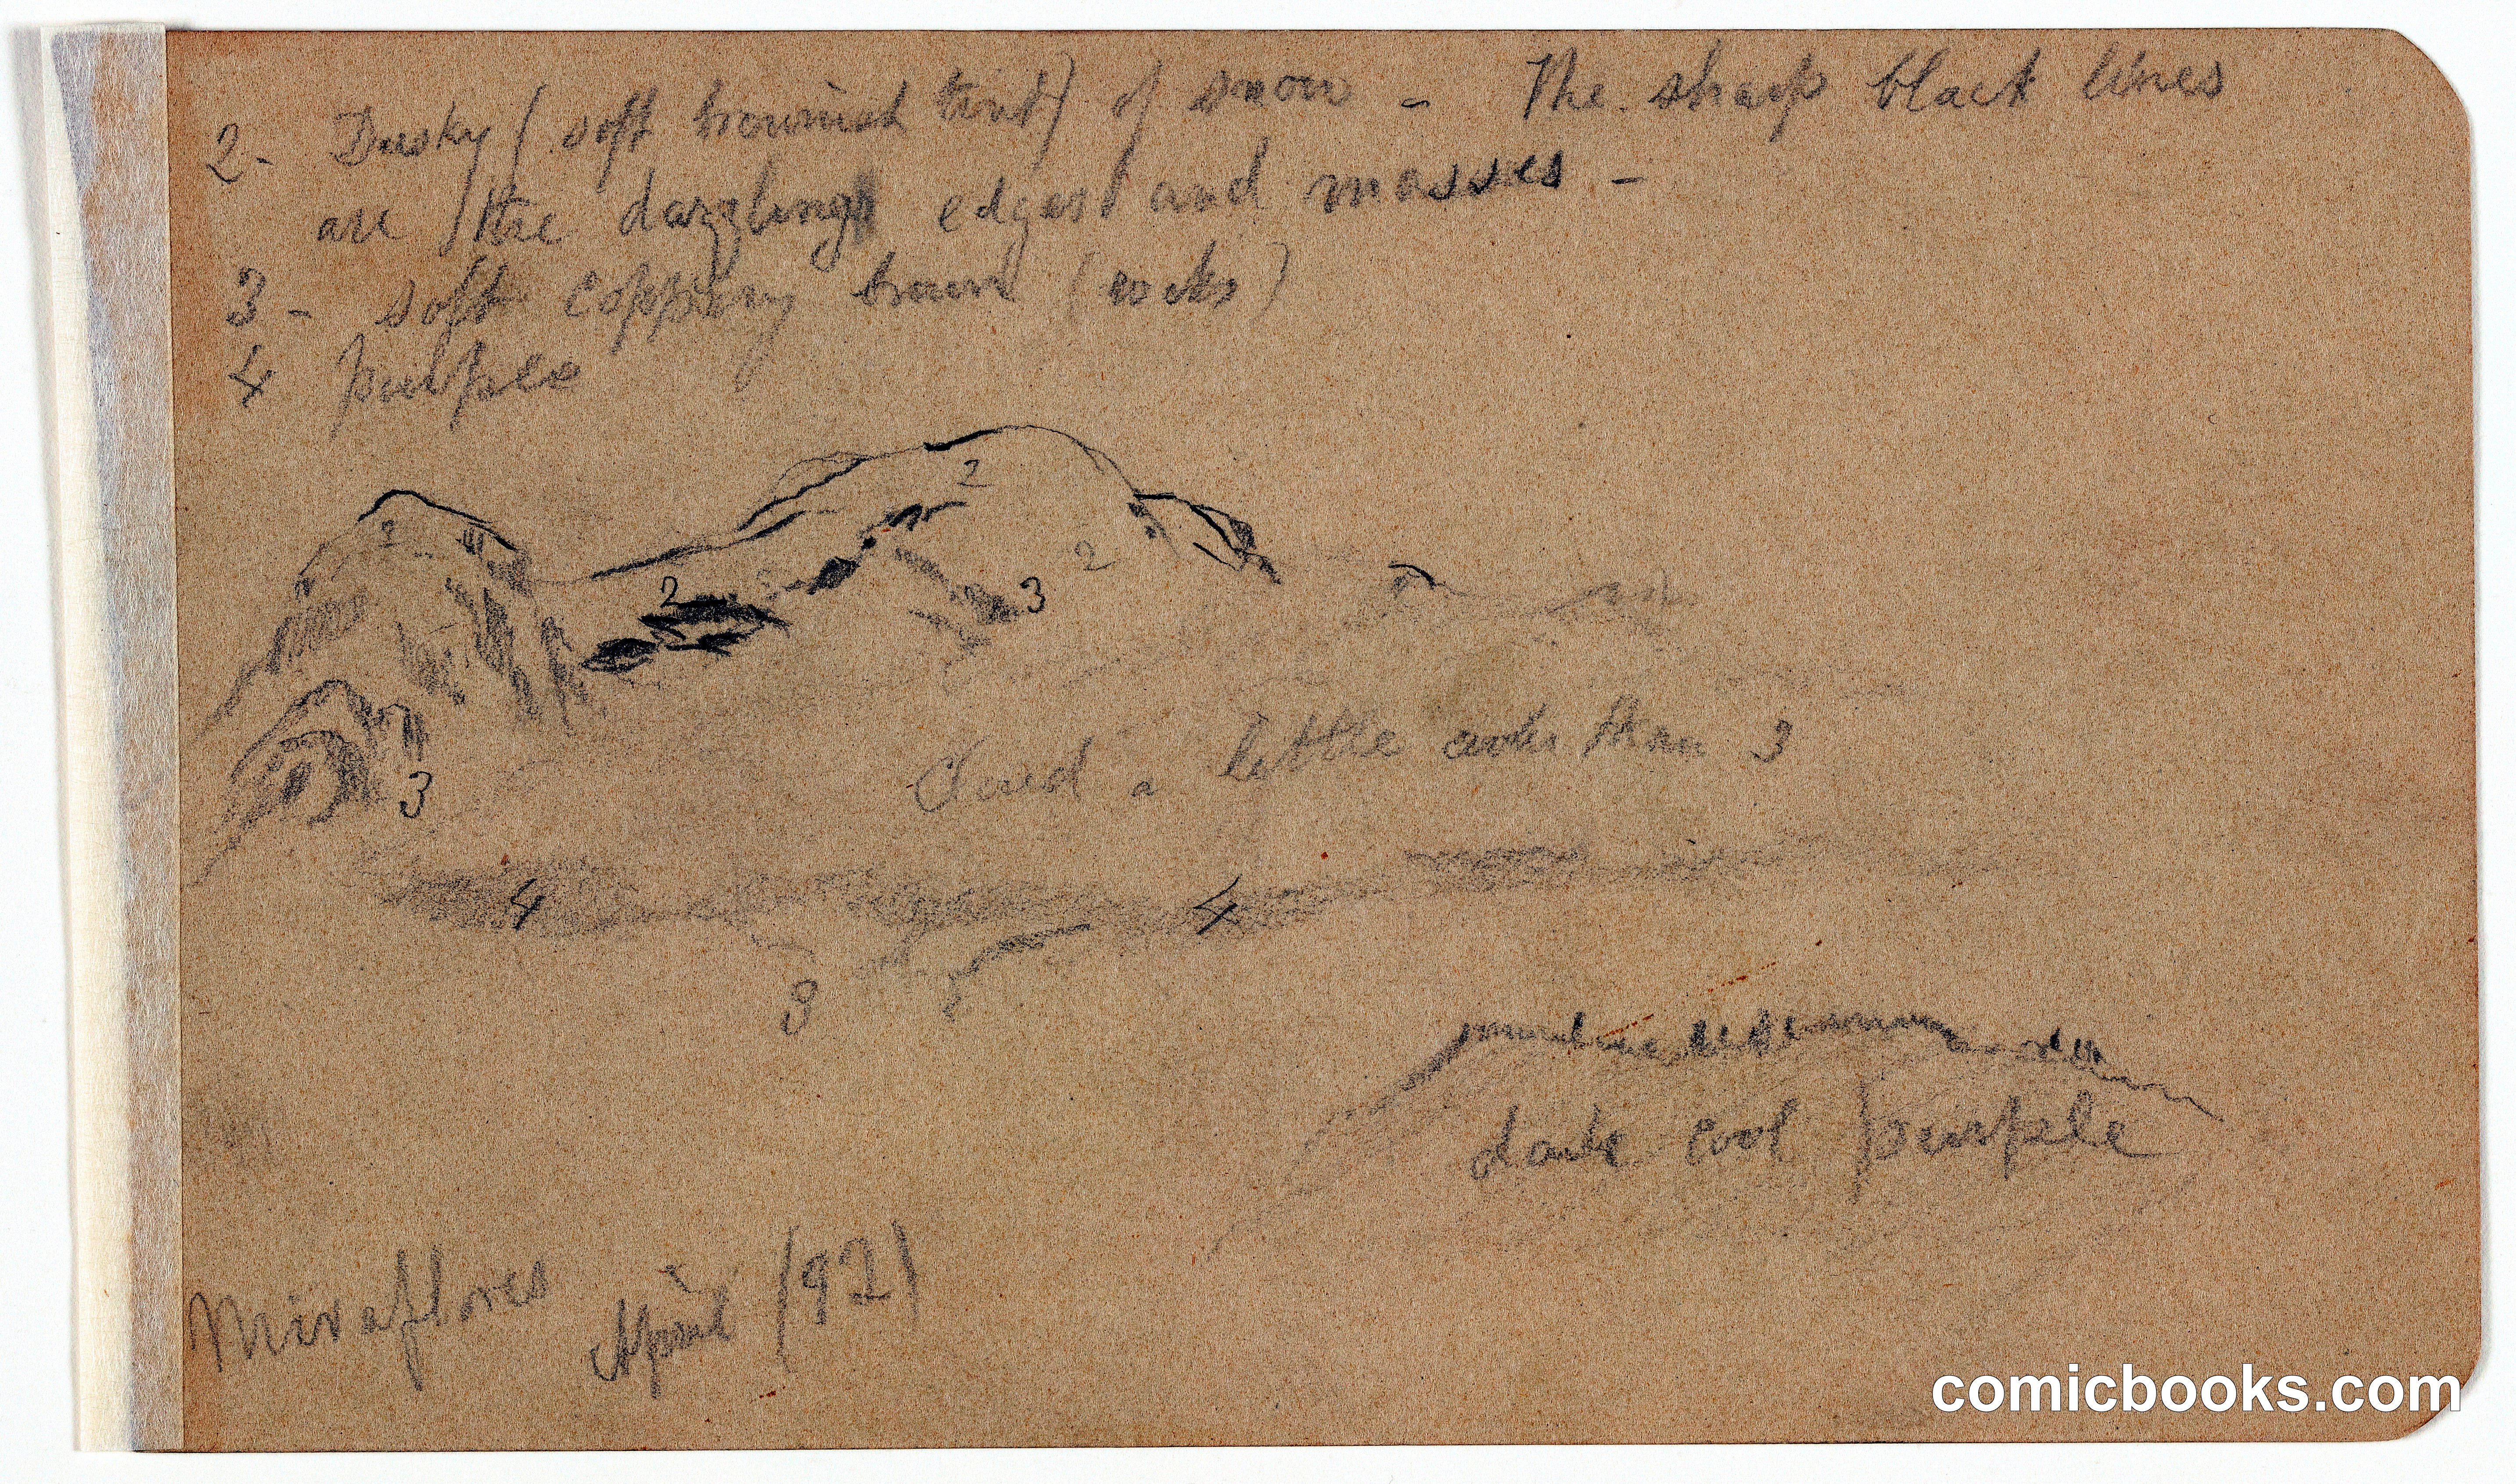 2- Dusky (soft brownish tint) of snow - The sharp black lines
are the dazzling edges and masses -
3 - soft coppery brown (rocks)
4 purple
2
2
2
2
3
Cloud a little than 3
3
4
4
3
dark cool purple
Miraflores April (92)
comicbooks.com